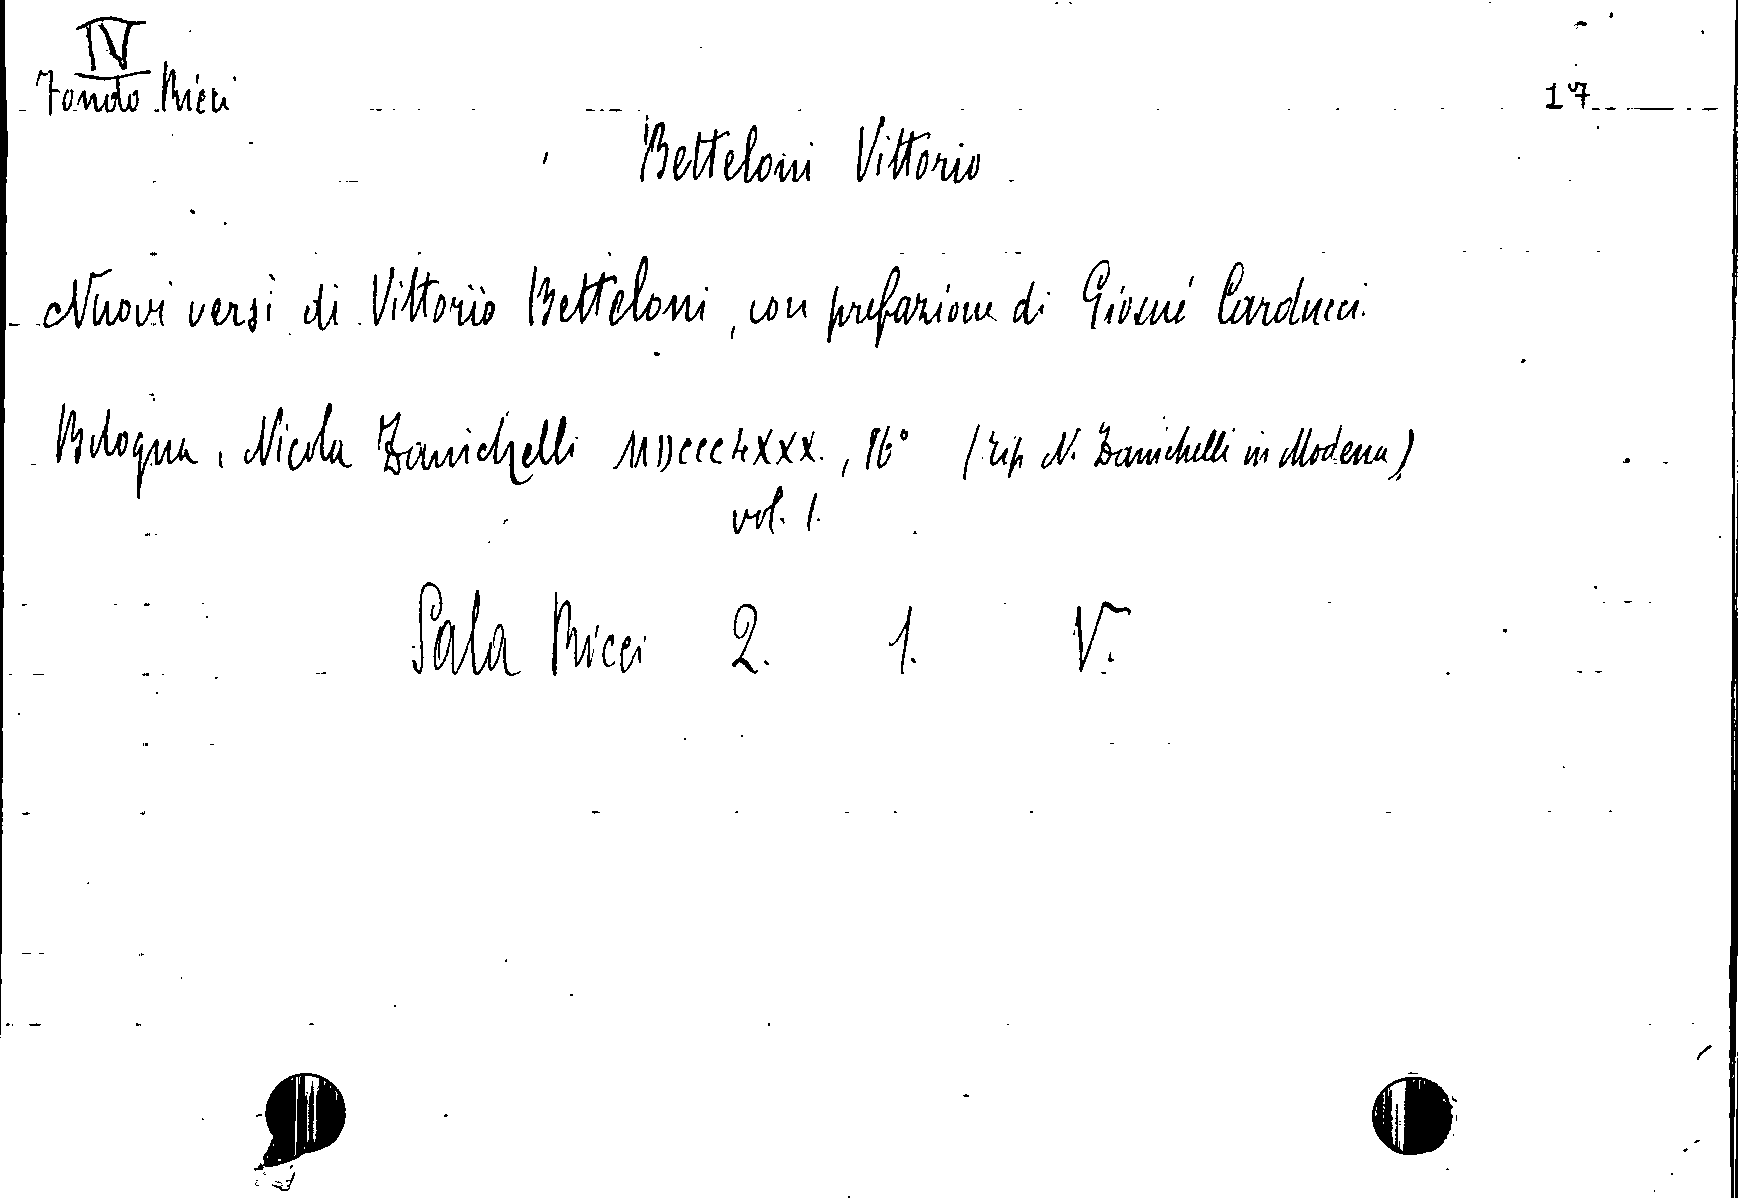 IV
Fondo Ricci
17
Betteloni Vittorio
Nuovi versi di Vittorio Betteloni, con prefazione di Giosué Carducci.
Bologna, Nicola Zanichelli MDCCCLXXX., 16° (tip. N. Zanichelli in Modena)
vol. 1.
Sala Ricci 2. 1. V.